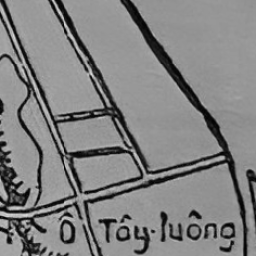 Ô Tây-luông